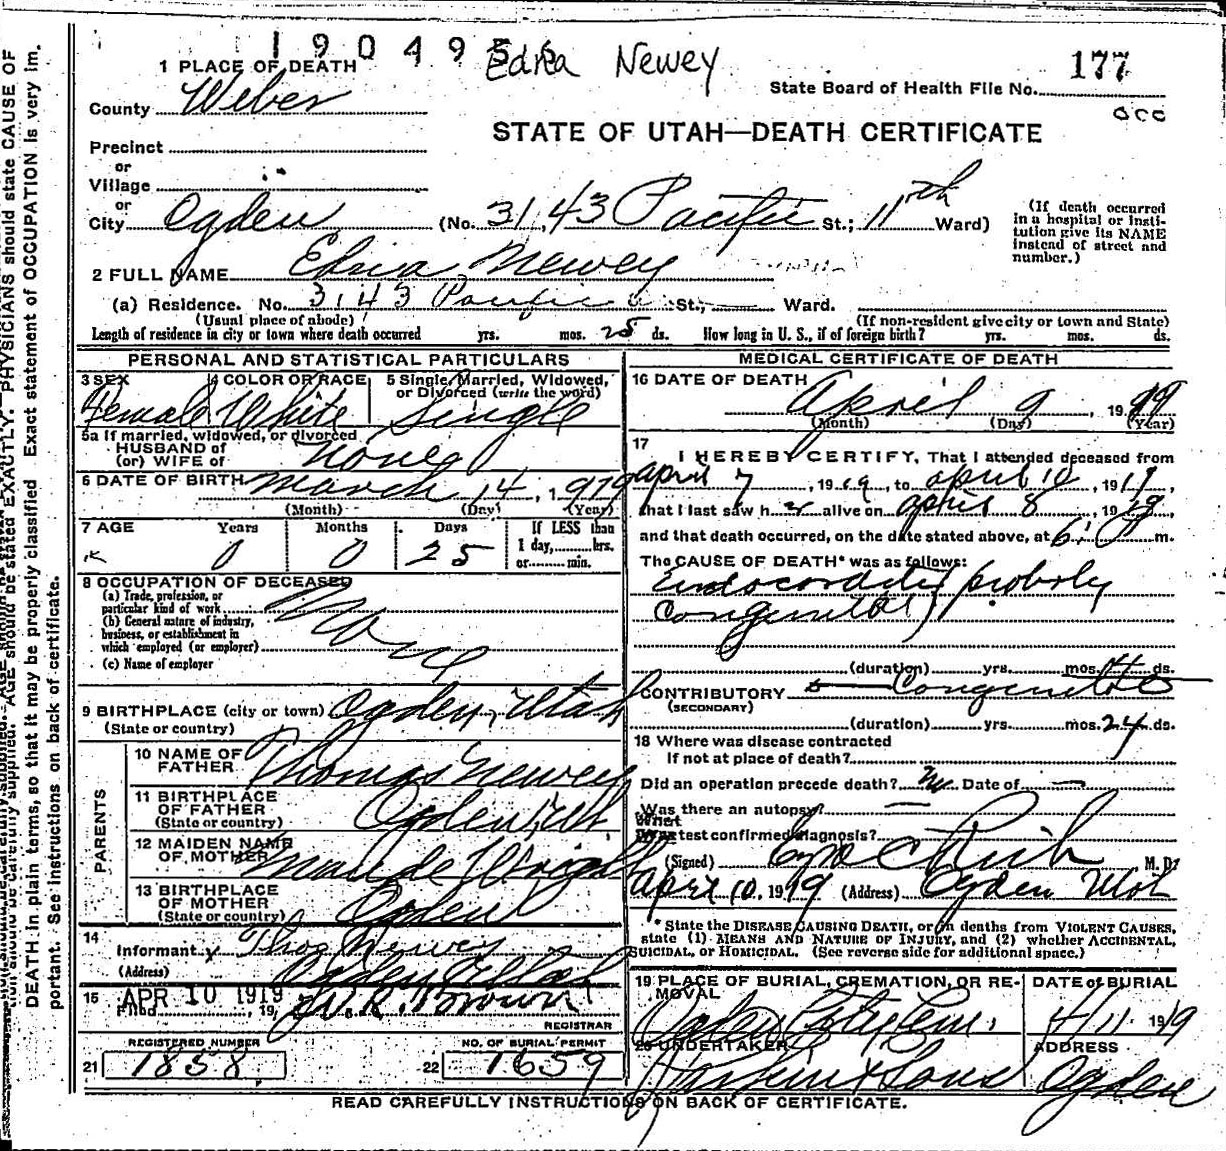 19049
Edna Newey
177
1 PLACE OF DEATH
State Board of Health File No.
County Weber
STATE OF UTAH—DEATH CERTIFICATE
Precinct
or
Village
or
City Ogden (No. 3143 Pacific St.; 11th Ward)
(If death occurred in a hospital or institution give its NAME instead of street and number.)
2 FULL NAME Newey
(a) Residence. No. 3143 Pacific St., Ward.
(Usual place of abode) (If non-resident give city or town and State)
Length of residence in city or town where death occurred yrs. mos. 25 ds. How long in U. S., if of foreign birth? yrs. mos. ds.
PERSONAL AND STATISTICAL PARTICULARS
3 SEX 4 COLOR OR RACE 5 Single, Married, Widowed, or Divorced (write the word)
Female White Single
5a If married, widowed, or divorced
HUSBAND of
(or) WIFE of None
6 DATE OF BIRTH March 14, 1919
(Month) (Day) (Year)
7 AGE Years Months Days If LESS than
0 0 25 1 day,.....hrs.
or.....min.
8 OCCUPATION OF DECEASED
(a) Trade, profession, or
particular kind of work
(b) General nature of industry,
business, or establishment in
which employed (or employer)
(c) Name of employer
None
9 BIRTHPLACE (city or town) Ogden, Utah
(State or country)
PARENTS
10 NAME OF FATHER Thomas Newey
11 BIRTHPLACE OF FATHER Ogden, Ut
(State or country)
12 MAIDEN NAME OF MOTHER Maude Wright
13 BIRTHPLACE OF MOTHER Ogden
(State or country)
14 Informant Thos Newey
(Address) Ogden Utah
15 Filed APR 10 1919, 19 W.R. Brown
REGISTRAR
REGISTERED NUMBER
21 1858
NO. OF BURIAL PERMIT
22 1659
MEDICAL CERTIFICATE OF DEATH
16 DATE OF DEATH April 9, 1919
(Month) (Day) (Year)
17 I HEREBY CERTIFY, That I attended deceased from
April 7, 1919, to April 10, 1919,
that I last saw her alive on April 8, 1919,
and that death occurred, on the date stated above, at 6 m.
The CAUSE OF DEATH* was as follows:
Endocarditis probably
Congenital
(duration) yrs. mos. ds.
CONTRIBUTORY Congenital
(SECONDARY)
(duration) yrs. mos. 24 ds.
18 Where was disease contracted
If not at place of death?
Did an operation precede death? No Date of —
Was there an autopsy? —
What test confirmed diagnosis?
(Signed) Rich M. D.
April 10, 1919 (Address) Ogden Utah
*State the DISEASE CAUSING DEATH, or in deaths from VIOLENT CAUSES, state (1) MEANS AND NATURE OF INJURY, and (2) whether ACCIDENTAL, SUICIDAL, or HOMICIDAL. (See reverse side for additional space.)
19 PLACE OF BURIAL, CREMATION, OR REMOVAL DATE of BURIAL
Ogden City Cem. 4/11 1919
20 UNDERTAKER ADDRESS
Larkin & Sons Ogden
READ CAREFULLY INSTRUCTIONS ON BACK OF CERTIFICATE.
AGE should be stated EXACTLY. PHYSICIANS should state CAUSE OF
DEATH in plain terms, so that it may be properly classified. Exact statement of OCCUPATION is very im-
portant. See instructions on back of certificate.